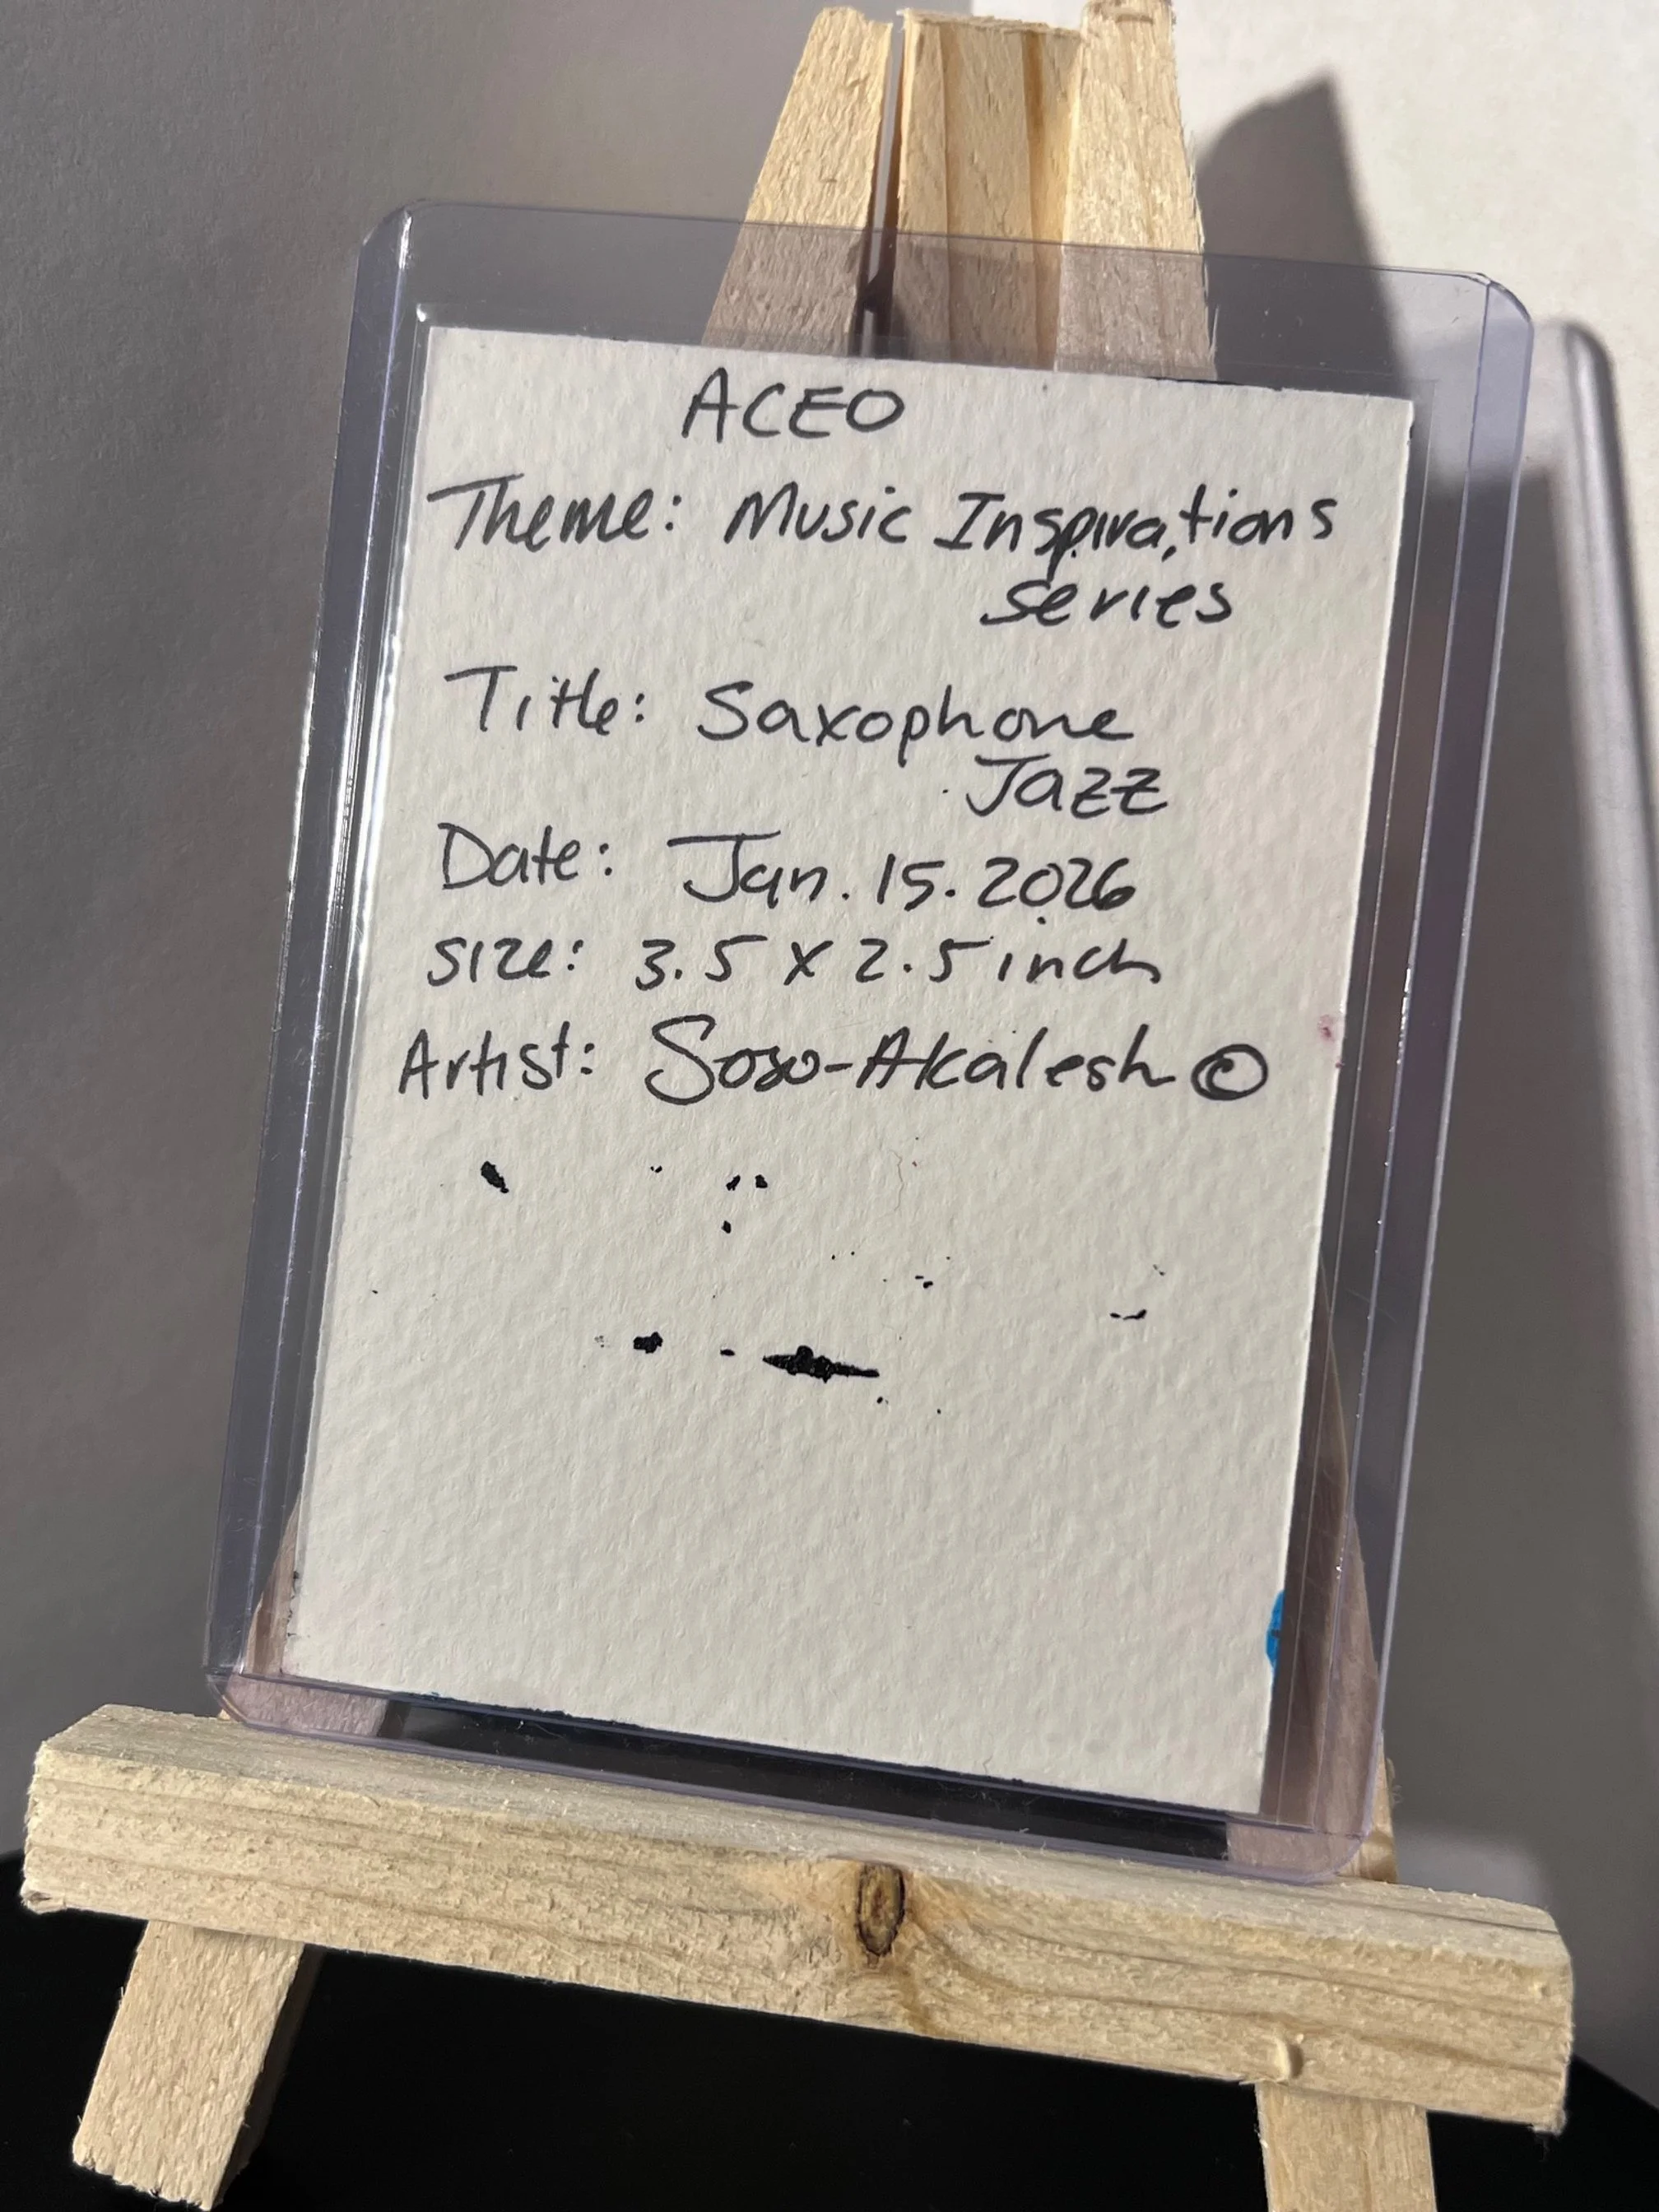 ACEO
Theme: Music Inspirations
series
Title: Saxophone
Jazz
Date: Jan. 15. 2026
Size: 3.5 x 2.5 inch
Artist: Soso-Akalesh ©